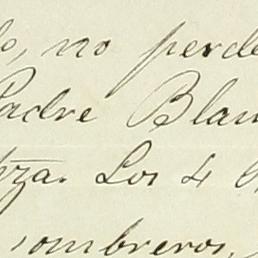 o, no perde
Padre Blan
za. Los 4
sombreros,